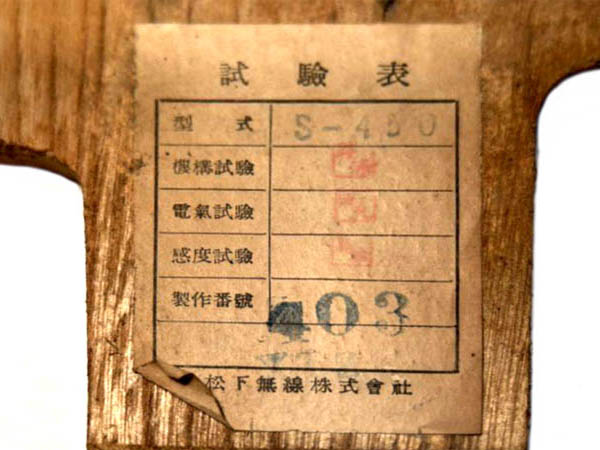 試驗表
型式 S-430
機構試驗
電氣試驗
感度試驗
製作番號 403
松下無線株式會社